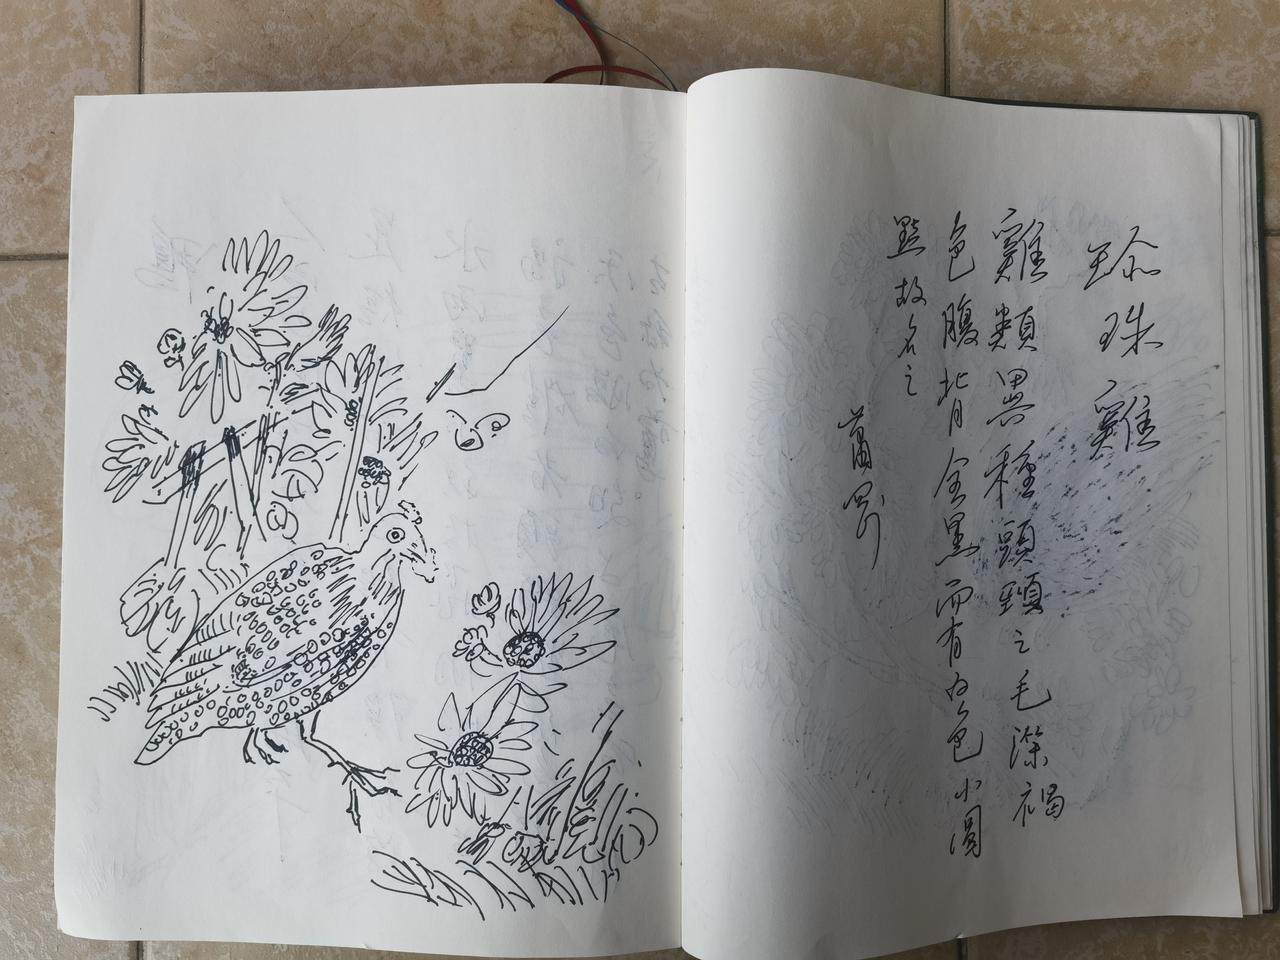 珎珠雞
雞類異種頭頸之毛深褐
色腹背全黑而有白色小圓
點故名之